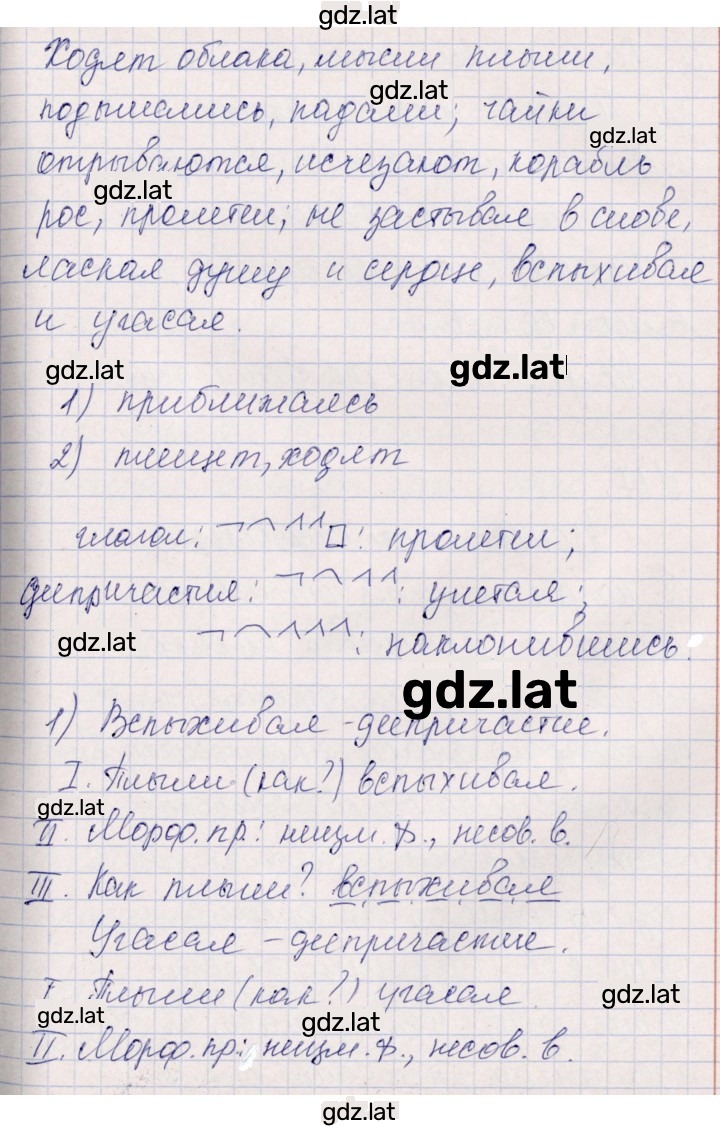 gdz.lat
Ходят облака, мысли плыли,
gdz.lat
подымались, падали; чайки
gdz.lat
отрываются, исчезают, корабль
gdz.lat
рос, пролетел; не застывая в слове,
лаская душу и сердце, вспыхивая
и угасая.
gdz.lat
gdz.lat
1) приближаясь
2) пишет, ходят
глагол: : пролетел;
деепричастия: : улетая;
gdz.lat
: наклонившись.
gdz.lat
1) Вспыхивая - деепричастие.
I. Плыли (как?) вспыхивая.
gdz.lat
II. Морф. пр.: неизм. ф., несов. в.
III. Как плыли? вспыхивая
Угасая - деепричастие.
I Плыли (как?) угасая.
gdz.lat
gdz.lat
gdz.lat
II. Морф. пр: неизм. ф., несов. в.
gdz.lat